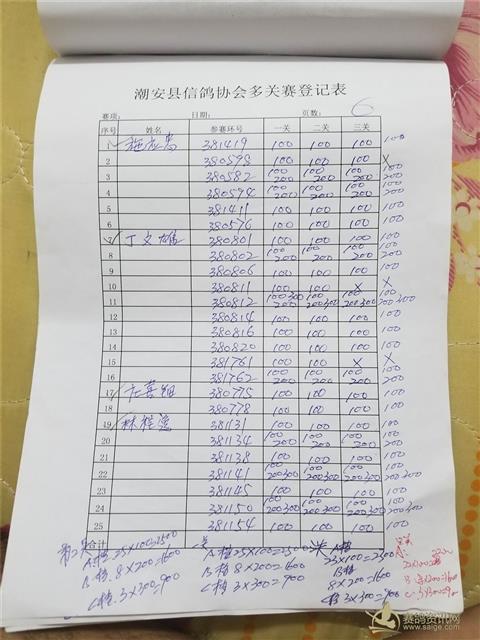 潮安县信鸽协会多关赛登记表
赛项: 日期: 页数: 6
序号 姓名 参赛环号 一关 二关 三关
1 381419 100 100 100 100
2 380575 100 100 100 X
3 380582 100 200 100 200 100 200 100 200
4 380594 100 200 100 200 100 200 100 200
5 381411 100 100 100 100
6 380576 100 100 100 100
7 丁文雄 380801 100 100 100 100
8 380802 100 200 100 200 100 200 100 200
9 380806 100 100 100 100
10 380811 100 100 X X
11 380812 100 300 200 100 300 200 100 200 300 100 200 300
12 380814 100 100 100 100
13 380816 100 100 100 100
14 380820 100 100 100 100
15 381761 100 100 X X
16 381762 100 200 100 200 100 200 100 200
17 380775 100 100 100 100
18 380778 100 100 100 100
19 381131 100 100 100 100
20 381134 100 200 100 200 100 200 100 200
21 381138 100 100 100 100
22 381141 100 200 300 100 200 300 100 200 300 100 200 300
23 381145 100 100 100 100
24 381150 100 200 300 100 200 300 100 200 300 100 200 300
25 381154 100 100 100 100
合计
A档 25×100=2500 A档 25×100=2500 A档 25×100=2500
B档 8×200=1600 B档 8×200=1600 B档 8×200=1600
C档 3×300=900 C档 3×300=900 C档 3×300=900
赛鸽资讯网
www.saige.com